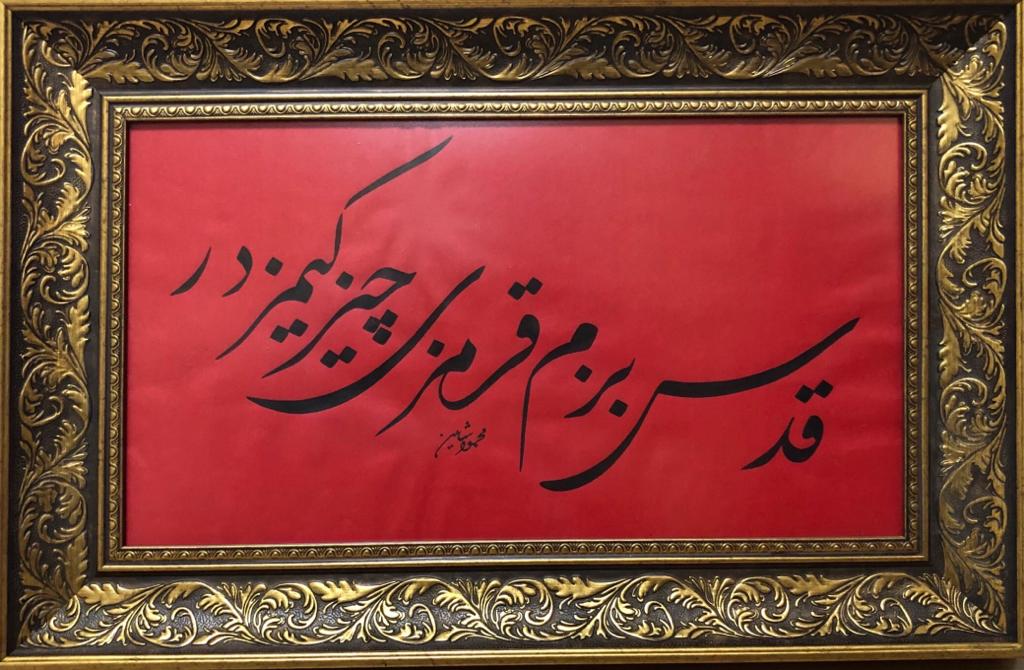 قدس بزم قرمزی چیزگیمزدر
محمود شاهین